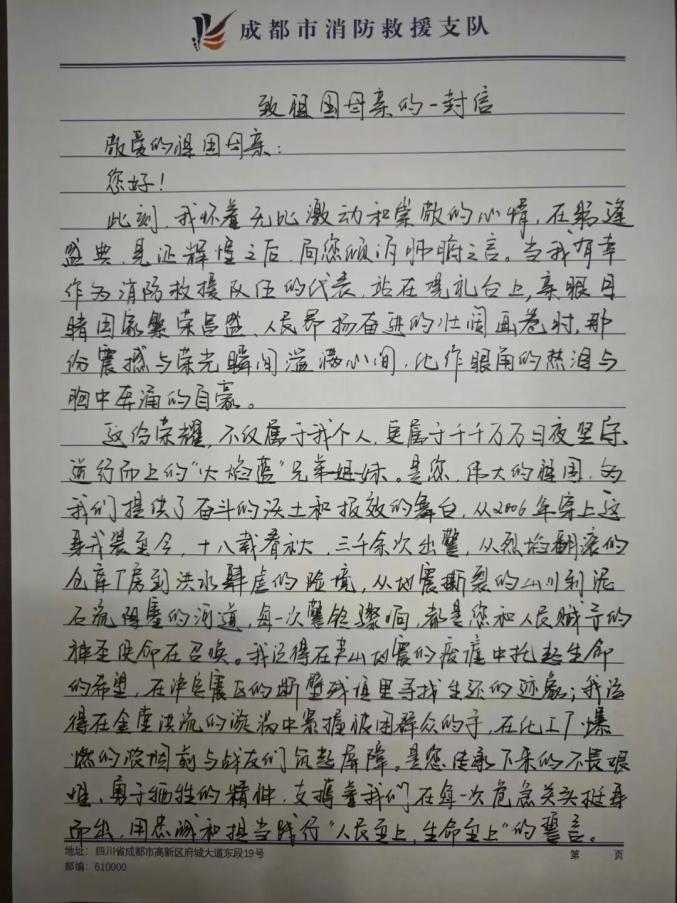 成都市消防救援支队
致祖国母亲的一封信
敬爱的祖国母亲：
您好！
此刻，我怀着无比激动和崇敬的心情，在躬逢
盛典、见证辉煌之后，向您倾泻肺腑之言。当我有幸
作为消防救援队伍的代表，站在观礼台上，亲眼目
睹国家繁荣昌盛、人民昂扬奋进的壮阔画卷时，那
份震撼与荣光瞬间溢满心间，化作眼角的热泪与
胸中奔涌的自豪。
这份荣耀，不仅属于我个人，更属于千千万万日夜坚守、
逆行而上的“火焰蓝”兄弟姐妹。是您，伟大的祖国，为
我们提供了奋斗的沃土和报效的舞台，从2006年穿上这
身戎装至今，十八载春秋，三千余次出警，从烈焰翻滚的
仓库厂房到洪水肆虐的险境，从地震撕裂的山川到泥
石流阻塞的河道，每一次警铃骤响，都是您和人民赋予的
神圣使命在召唤。我记得在芦山地震的废墟中托起生命
的希望，在泸定震区的断壁残垣里寻找生还的迹象；我记
得在金堂洪流的漩涡中紧握被困群众的手，在化工厂爆
燃的浓烟前与战友们筑起屏障。是您传承下来的不畏艰
难、勇于牺牲的精神，支撑着我们在每一次危急关头挺身
而出，用忠诚和担当践行“人民至上，生命至上”的誓言。
地址：四川省成都市高新区府城大道东段19号
第 页
邮编：610000